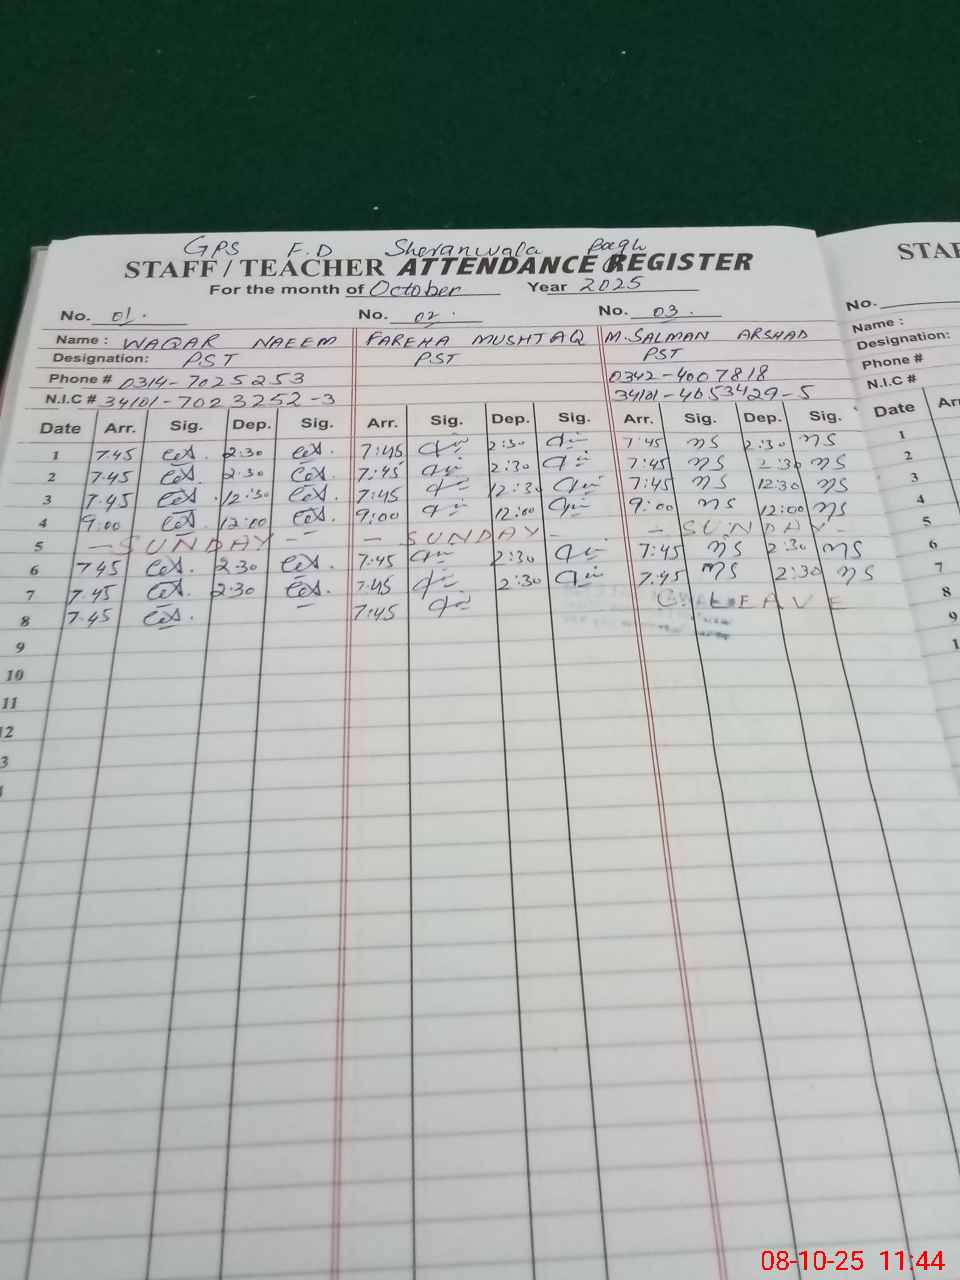 GPS F.D Sheranwala Bagh
STAFF / TEACHER ATTENDANCE REGISTER
For the month of October Year 2025
No. 01. No. 02. No. 03.
Name : WAQAR NAEEM FAREHA MUSHTAQ M.SALMAN ARSHAD
Designation: PST PST PST
Phone # 0314-7025253 0342-4007818
N.I.C # 34101-7023252-3 34101-4053429-5
Date Arr. Sig. Dep. Sig. Arr. Sig. Dep. Sig. Arr. Sig. Dep. Sig.
1 7.45 2:30 7:45 2:30 7:45 MS 2:30 MS
2 7.45 2:30 7:45 2:30 7:45 MS 2:30 MS
3 7.45 12:30 7:45 12:30 7:45 MS 12:30 MS
4 9:00 12:00 9:00 12:00 9:00 MS 12:00 MS
5 - SUNDAY - - SUNDAY - - SUNDAY -
6 7.45 2:30 7:45 2:30 7:45 MS 2:30 MS
7 7.45 2:30 7:45 2:30 7:45 MS 2:30 MS
8 7.45 7:45 LEAVE
9
10
11
12
3
STAF
No.
Name :
Designation:
Phone #
N.I.C #
Date Arr
1
2
3
4
5
6
7
8
9
1
08-10-25 11:44